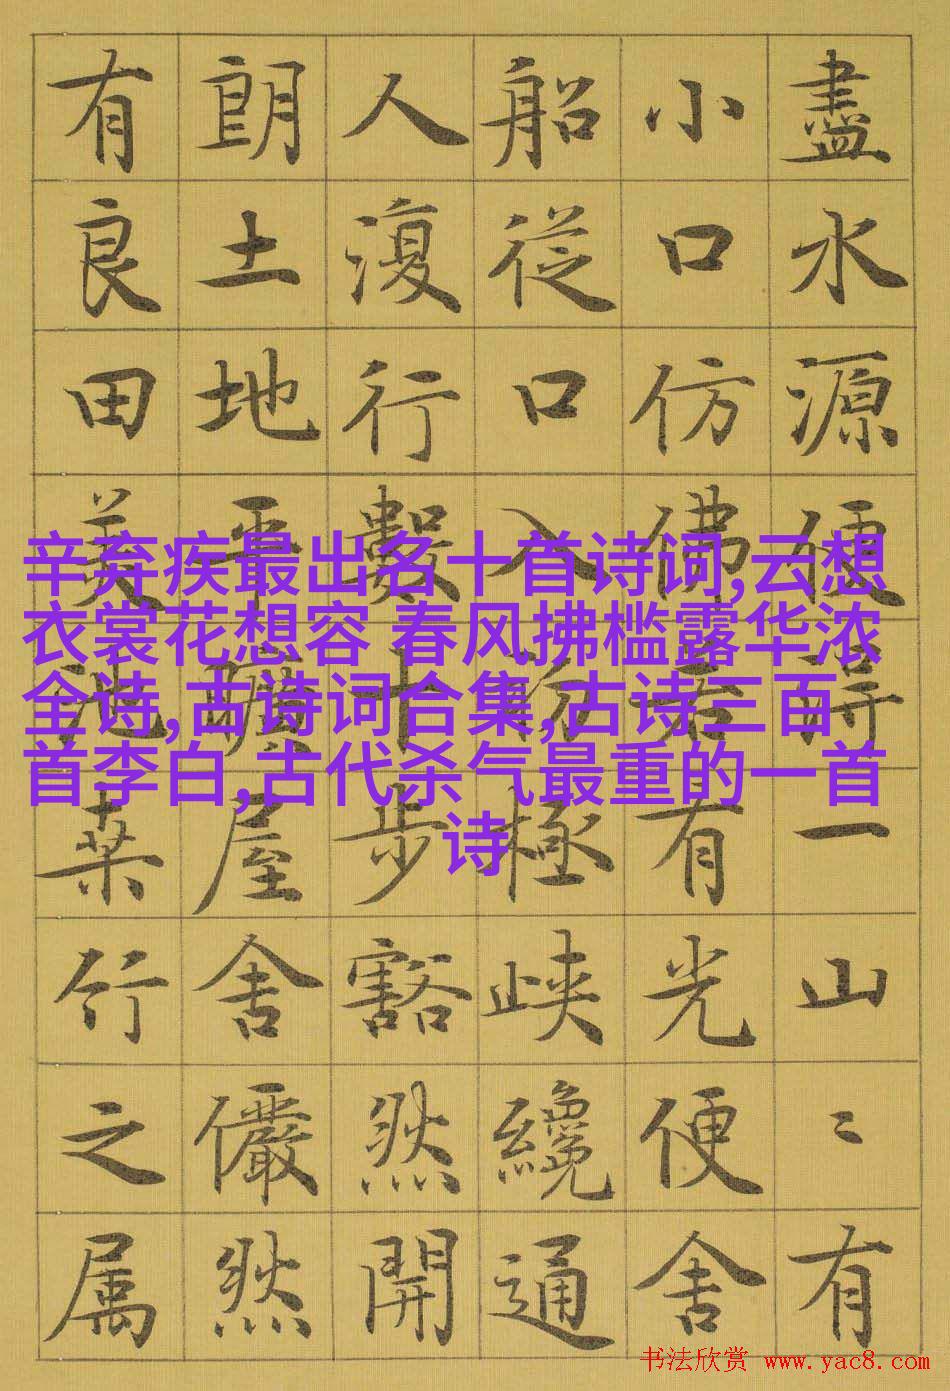 盡水源便得一山〻有
小口仿佛若有光便舍
船從口入初極峽纔通
人復行數十步豁然開
朗土地平曠屋舍儼然
有良田美池桒竹之属
辛弃疾最出名十首诗词,云想
衣裳花想容 春风拂槛露华浓
全诗,古诗词合集,古诗三百
首李白,古代杀气最重的一首
诗
书法欣赏 www.yac8.com